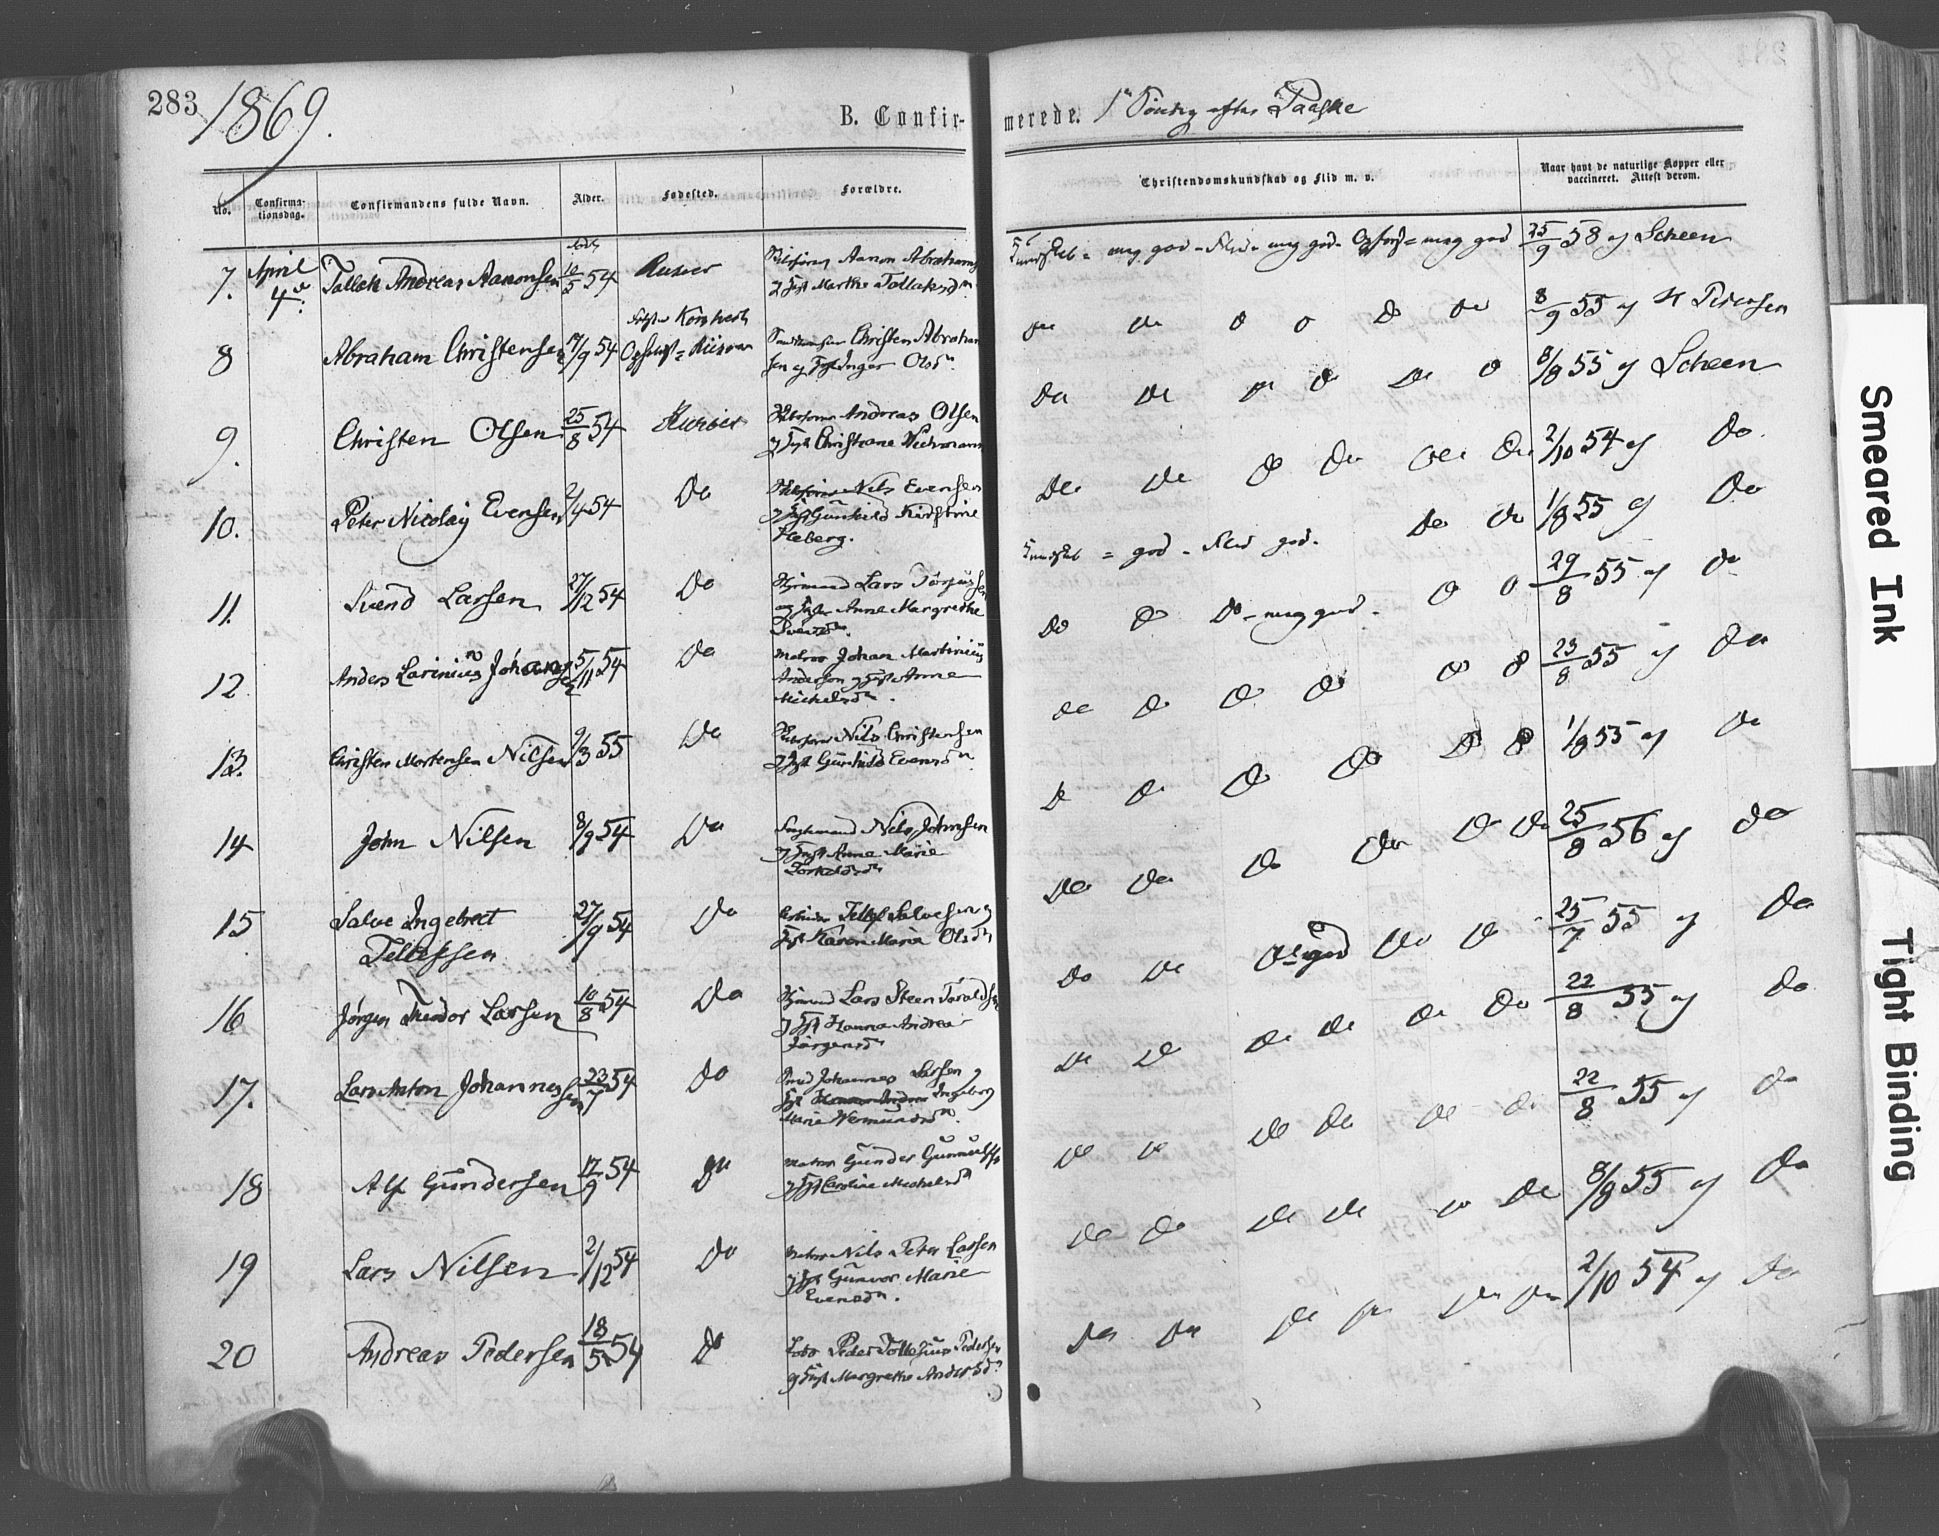 283 1869. B. Confir- merede. 1ste Søndag efter Paaske
No. Confirma- tionsdag. Confirmandens fulde Navn. Alder. Fødested. Forældre. Christendomskundskab og Flid m. v. Naar havt de naturlige Kopper eller vaccineret. Attest derom.
7. April 4de Tallak Andreas Aanonsen 10/5 54 Riisøer
Aanon Abrahams
og Hst Marthe Tallaksdn
Kundskab = meg god - Flid = meg god - Opførs = meg god 25/9 58 af Scheen
8 Abraham Christensen 17/9 54 Opfost = Riisøer
Christen Abraham
sen og Hst Inger Olsdn.
Do Do Do Do Do Do 8/9 55 af H Petersen
9. Christen Olsen 25/8 54 Riisøer
Andreas Olsen
og Hst Christiane
Do Do Do Do Do Do 8/8 55 af Scheen
10. Peter Nicolay Evensen 2/4 54 Do
Nils Evensen
og Hst Gunhild Kirstine
Heberg.
Do Do Do Do Do Do 2/10 54 af Do
11. Svend Larsen 27/12 54 Do
Styrmand Lars Torjussen
og Hst Anne Margrethe
Svensdn.
Kundskab = god - Flid god. Do Do 1/8 55 af Do
12 Anders Larinius Johansen 5/11 54 Do
Matros Johan Martinius
Andersen og Hst Anne
Michelsdn.
Do Do Do - meg god - Do Do 29/8 55 af Do
13. Christen Mortensen Nilsen 9/3 55 Do
Nils Christensen
og Hst Gunhild Evensdn
Do Do Do Do Do Do 23/8 55 af Do
14 John Nilsen 8/9 54 Do
Nils Johnsen
og Hst Anne Marie
Torkelsdn
Do Do Do Do Do Do 1/9 55 af Do
15 Salve Ingebret 27/9 54 Do
Tellefsen
Tellef Salvesen og
Hst Karen Maria Olsdn
Do Do Do Do Do Do 25/8 56 af Do
16 Jørgen Theodor Larsen 10/8 54 Do
Styrmand Lars Steen Taralds
og Hst Hanna Andrea
Jørgensdn
Do Do Do = god Do Do 25/7 55 af Do
17. Lars Anton Johannessen 23/7 54 Do
Smed Johannes Larsen og
Hst Hanna Andrea Ingeborg
Marie Vermundsdn.
Do Do Do Do Do Do 22/8 55 af Do
18 Alf Gundersen 17/9 54 Do
Matros Gunder Gunnulfs
og Hst Caroline Michelsdn
Do Do Do Do Do Do 22/8 55 af Do
19 Lars Nilsen 2/12 54 Do
Matros Nils Peter Larsen
og Hst Gunvor Marie
Evensdn.
Do Do Do Do Do Do 8/9 55 af Do
20 Andreas Pedersen 18/5 54 Do
Lods Peder Tollefsen Pedersen
og Hst Margrethe Andersdn
Do Do Do Do Do Do 2/10 54 af Do
Smeared Ink
Tight Binding